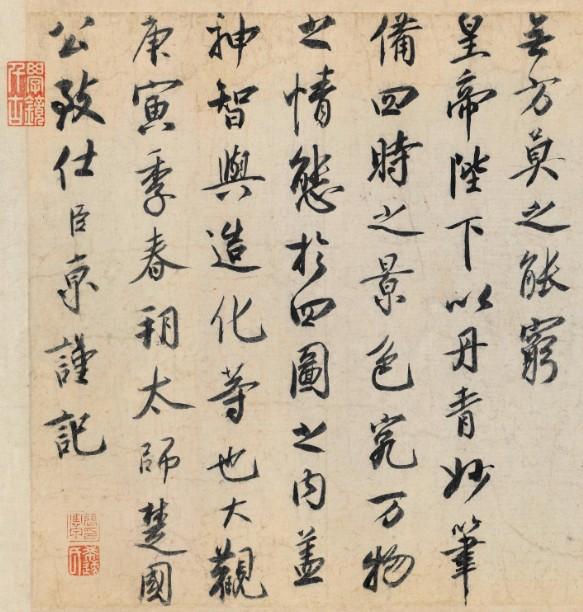 無方莫之能窮
皇帝陛下以丹青妙筆
備四時之景色究万物
之情態於四圖之内蓋
神智與造化等也大觀
庚寅季春朔太師楚國
公致仕臣京謹記